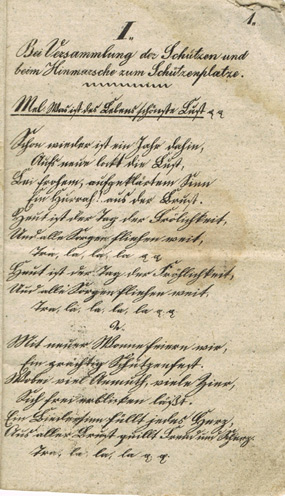 1.
I.
Bei Versammlung der Schützen und
beim Hinmarsche zum Schützenplatze.
Mel. Was ist des Lebens schönste Lust
Schon wieder ist ein Jahr dahin,
Aufs neue lockt die Lust,
Bei frohem, aufgeklärtem Sinn
Ein Hurrah! aus der Brust.
Heut ist der Tag der Frölichkeit,
Und alle Sorgen fliehen weit,
Tra, la, la, la
Heut ist der Tag der Fröhlichkeit,
Und alle Sorgen fliehen weit.
Tra, la, la, la, la
2.
Mit neuer Wonne feiern wir,
Ein prächtig Schützenfest.
Wobei viel Anmuth, viele Zier,
Sich frei erblicken läßt.
Ein Biedersinn füllt jedes Herz,
Aus aller Brust quillt Freud und Scherz
Tra, la, la, la